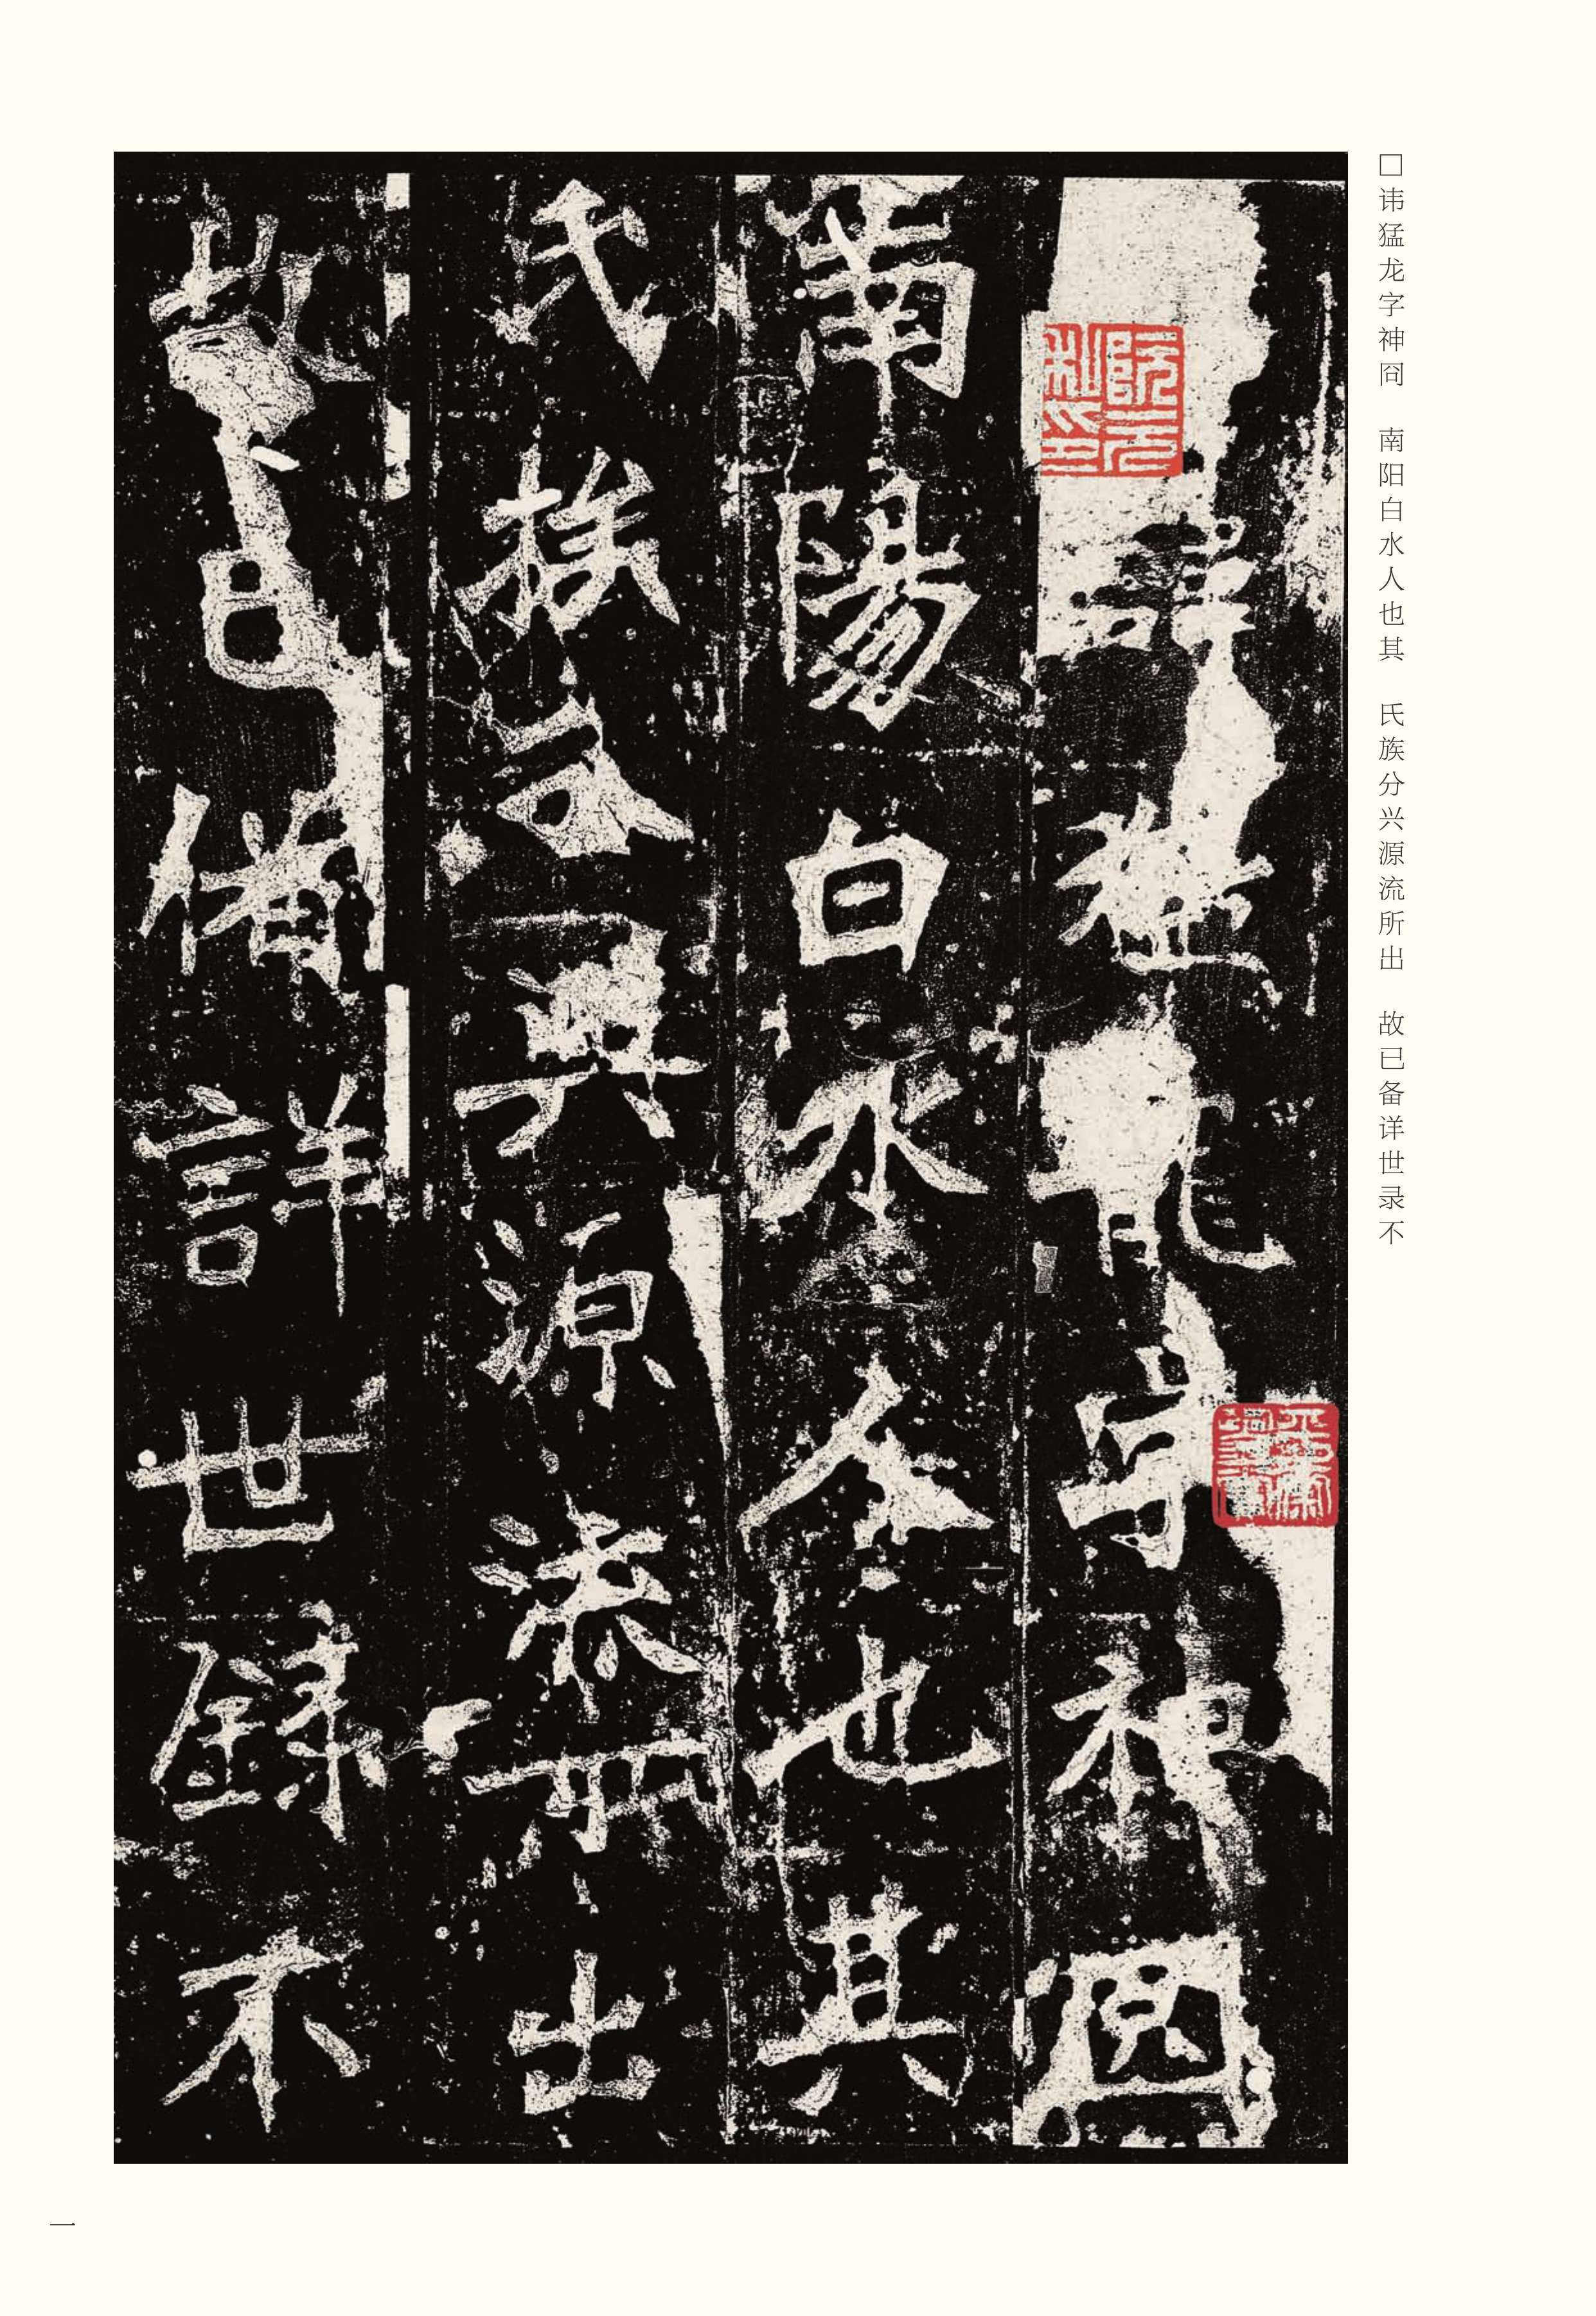 □讳猛龙字神冏　南阳白水人也其　氏族分兴源流所出　故已备详世录不
諱猛龍字神冏
南陽白水人也其
氏族分興源流所出
故已備詳世録不
阮元私印
一